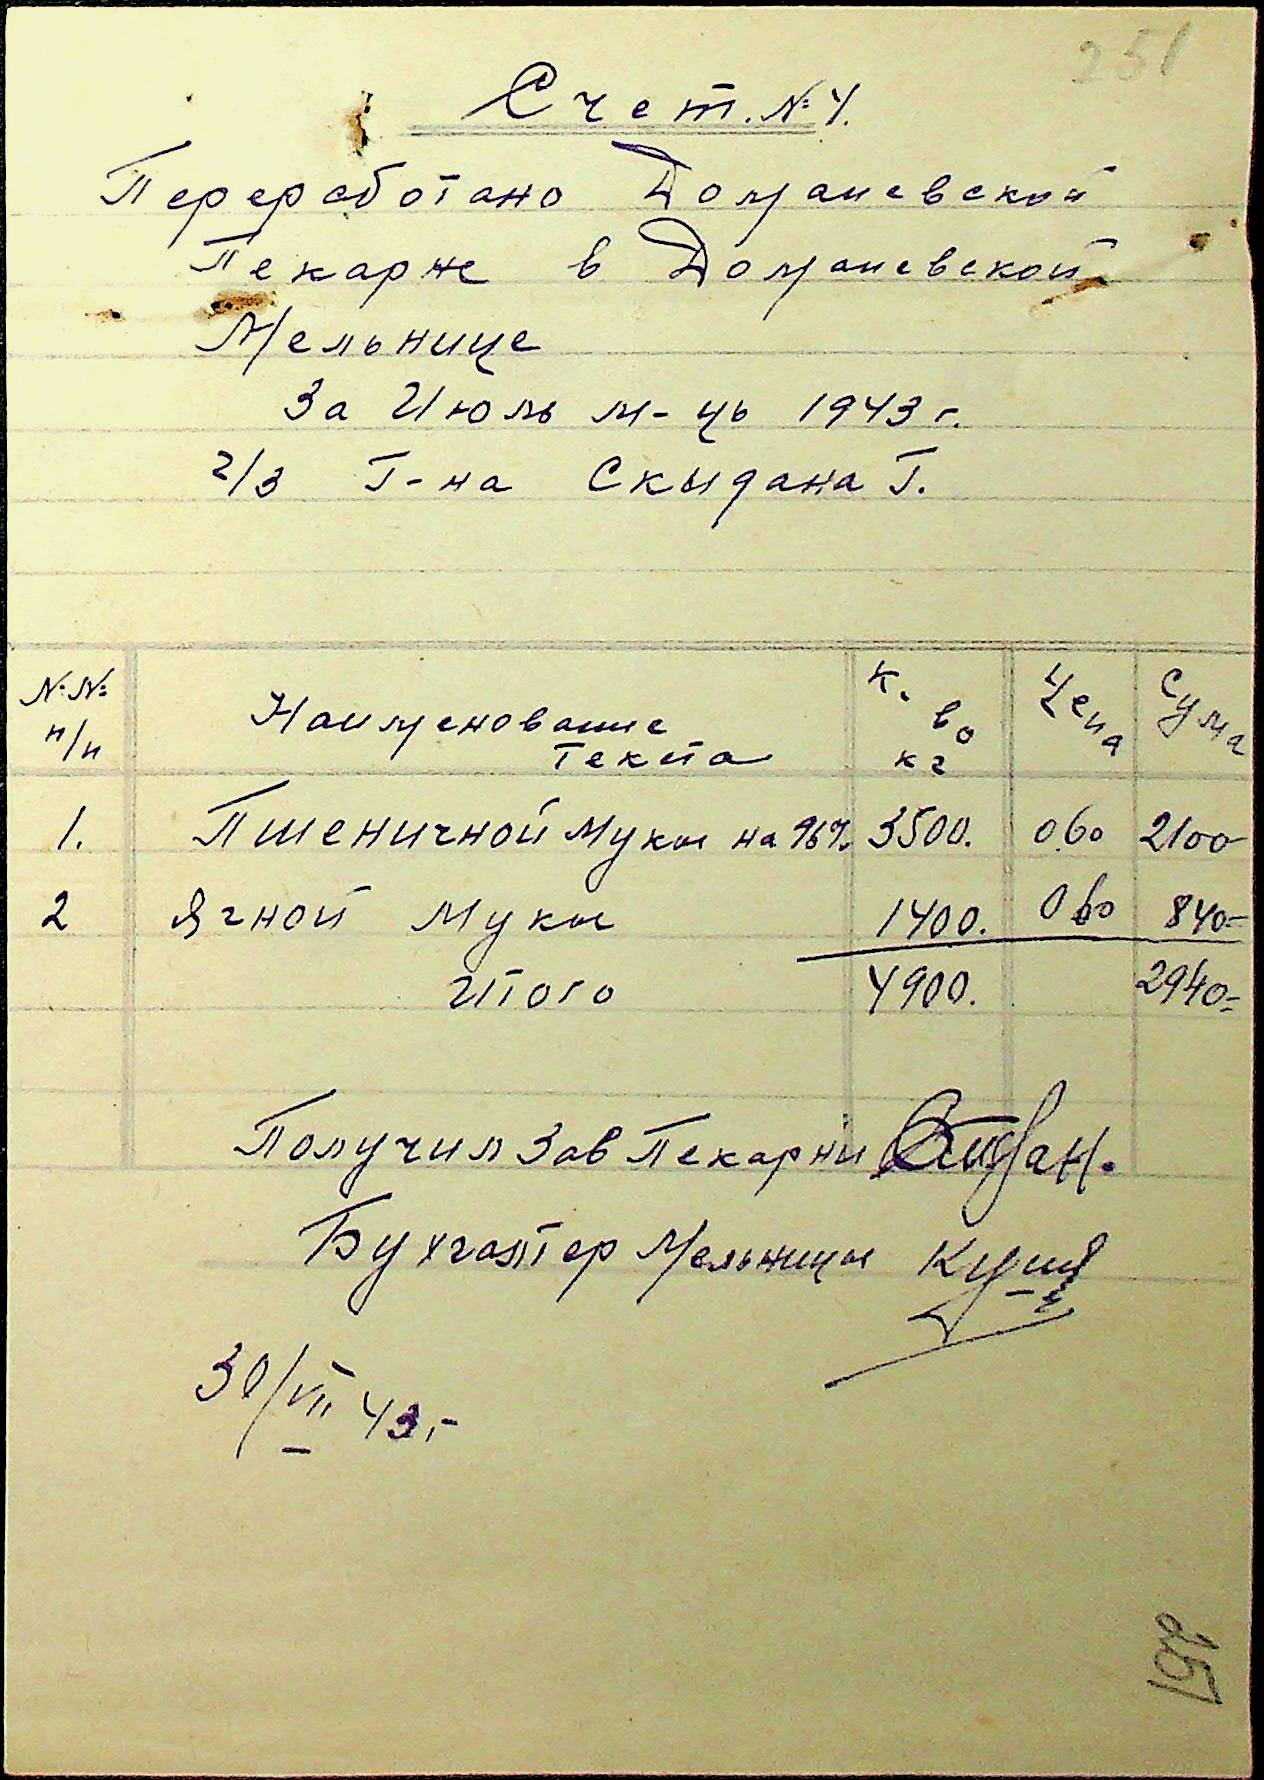 251
Счет. № 4.
Переработано Доманевской
Пекарне в Доманевской
Мельнице
За Июль м-ць 1943 г.
2/3 Г-на Скыдана Г.
№ № п/п Наименование текста К. во кг Цена Сума
1. Пшеничной муки на 96% 3500. 0.60 2100-
2 Ячной муки 1400. 0 60 840=
Итого 4900. 2940=
Получил Зав Пекарни
Бухгалтер Мельницы
30/VII 43,-
251